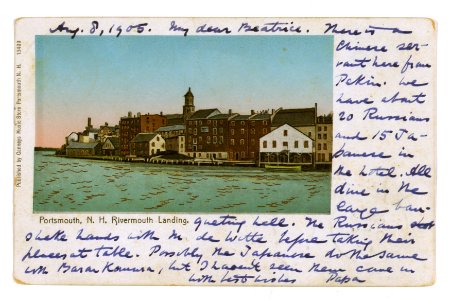 Aug. 8, 1905. My dear Beatrice. There is a
Chinese ser-
vant here from
Pekin. We
have about
20 Russians
and 15 Ja-
panese in
the hotel. All
dine in the
large ban-
queting hall. The Russians
shake hands with M. de Witte before taking their
places at table. Possibly the Japanese do the same
with Baron Komura, but I haven't seen them come in
with best wishes Papa
Portsmouth, N. H. Rivermouth Landing.
Published by Music Store Portsmouth N. H.